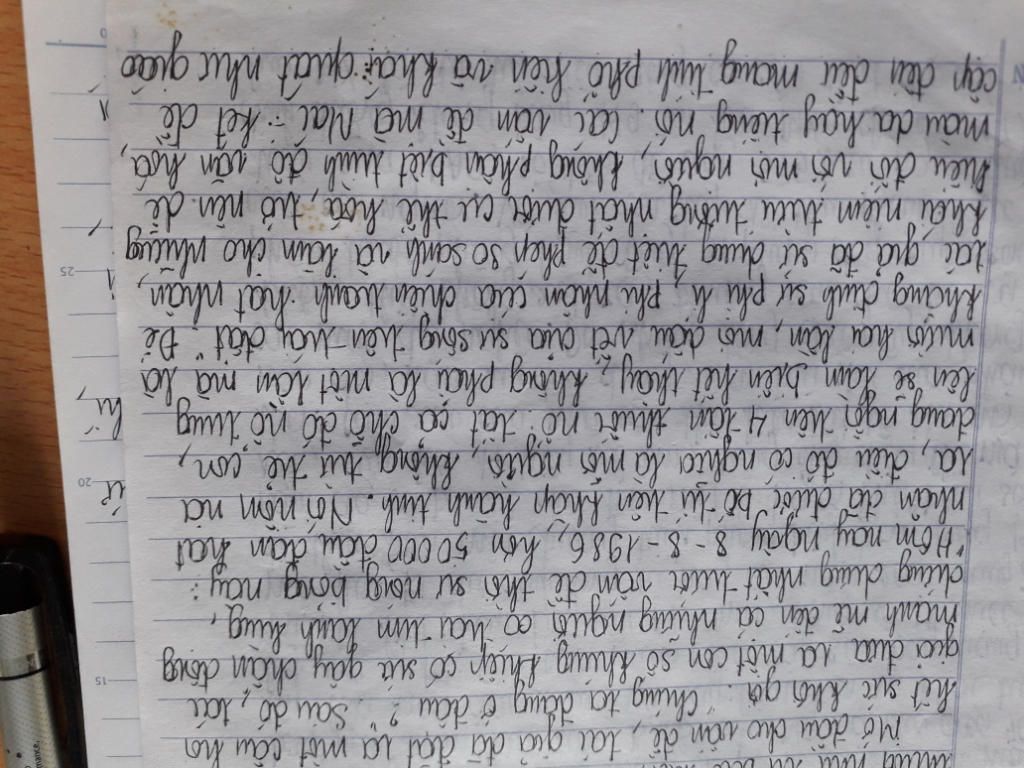 Mở đầu cho vấn đề, tác giả đã đặt ra một câu hỏi
hết sức khơi gợi "Chúng ta đang ở đâu?". Sau đó, tác
giả đưa ra một con số khủng khiếp có sức gây chấn động
mạnh mẽ đến cả những người có trái tim lạnh lùng,
dửng dưng nhất trước vấn đề thời sự nóng bỏng này:
"Hôm nay ngày 8-8-1986, hơn 50 000 đầu đạn hạt
nhân đã được bố trí trên khắp hành tinh. Nói nôm na
ra, điều đó có nghĩa là mỗi người, không trừ trẻ con,
đang ngồi trên 4 tấn thuốc nổ: tất cả chỗ đó nổ tung
lên sẽ làm biến hết thảy, không phải là một lần mà là
mười hai lần, mọi dấu vết của sự sống trên trái đất". Để
khẳng định sự phi lí, phi nhân của chiến tranh hạt nhân,
tác giả đã sử dụng triệt để phép so sánh và làm cho những
khái niệm trừu tượng nhất được cụ thể hóa, trở nên dễ
hiểu đối với mọi người, không phân biệt trình độ, văn hóa,
màu da hay tiếng nói. Các vấn đề mà Mác-két đề
cập đến đều mang tính phổ biến và khái quát như giáo
25
20
15